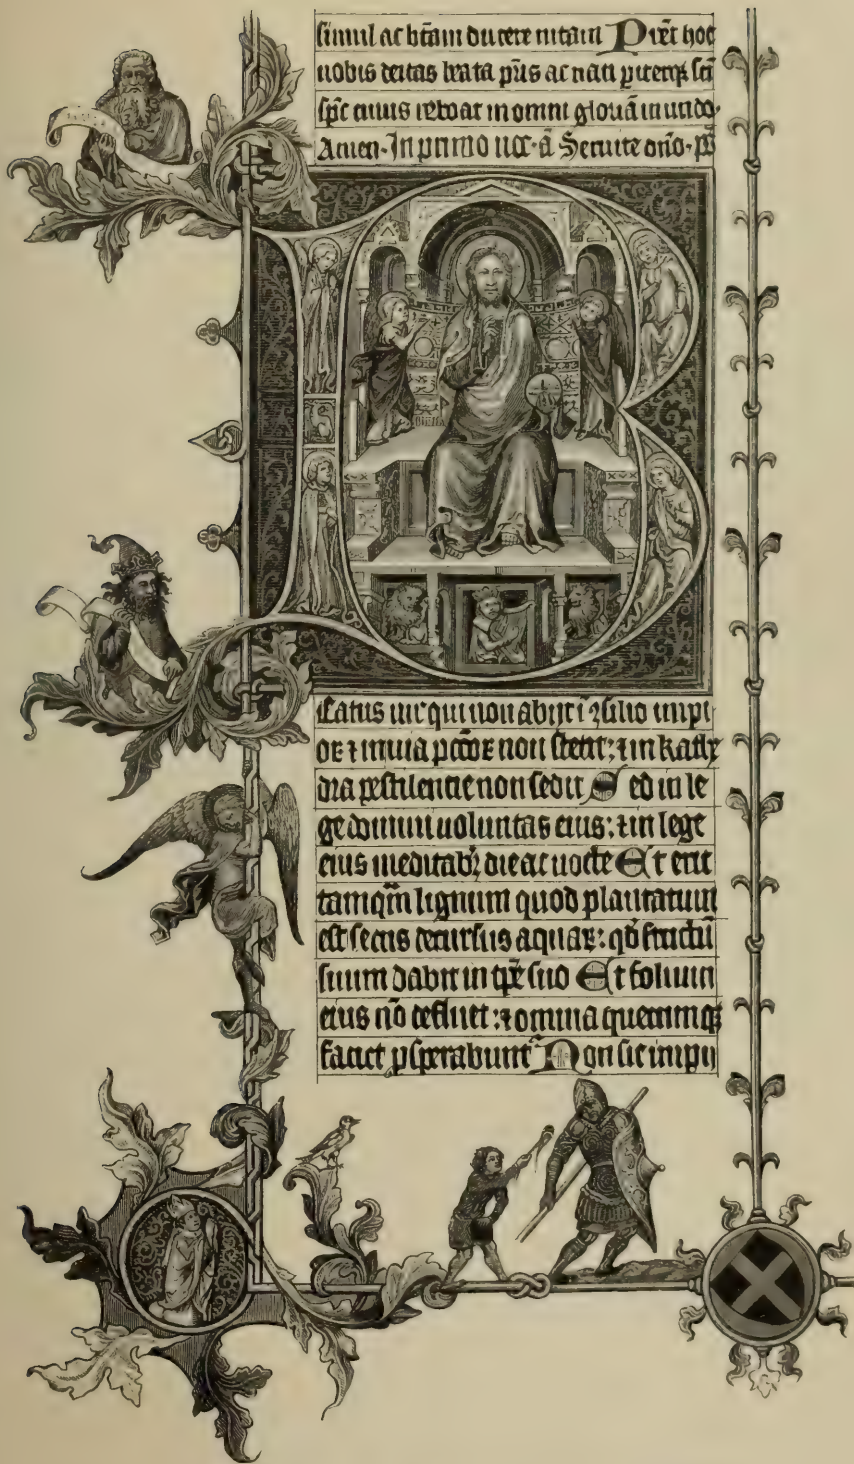 simul ac btam ducere vitam Prēt hoc
nobis deitas beata pris ac nati piterq sci
spc cuius reboat in omni gloria in undo·
Amen· In primo noc· a Seruite
Eatus uir qui non abijt i 9silio impi
oꝝ ⁊ in uia pctoꝝ non stetit: ⁊ in kathe
dra pestilentie non sedit Sed in le
ge domini uoluntas eius: ⁊ in lege
eius meditabꝫ die ac nocte Et erit
tamqm lignum quod plantatum
est secus decursus aquaꝝ: qd fructū
suum dabit in tpe suo Et folium
eius nō defluet: ⁊ omnia quecumqꝫ
faciet psperabunt Non sic impij